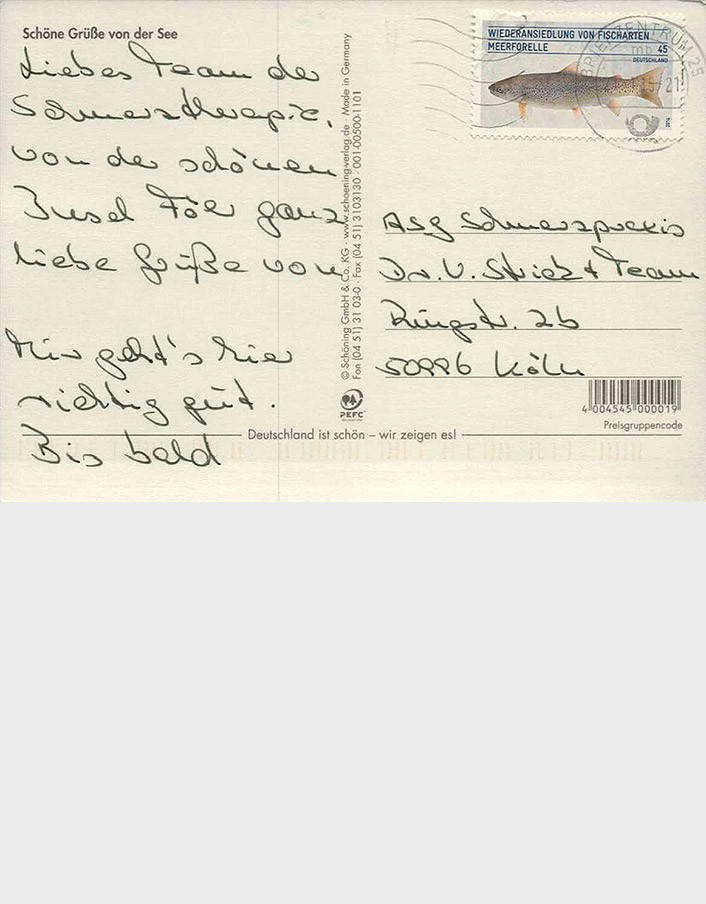 Schöne Grüße von der See
Liebes Team der
Schmerztherapie,
von der schönen
Insel Föhr ganz
liebe Grüße von
Mir geht's hier
richtig gut.
Bis bald
© Schöning GmbH & Co. KG · www.schoening-verlag.de · Made in Germany
Fon (04 51) 31 03-0 · Fax (04 51) 3103130 · 001-00500-1101
PEFC
WIEDERANSIEDLUNG VON FISCHARTEN
MEERFORELLE 45
DEUTSCHLAND
2014
BRIEFZENTRUM 25
mb
ASG Schmerzpraxis
Dr. U. Strick + Team
Ringstr. 2b
50996 Köln
4 004545 000019
Preisgruppencode
Deutschland ist schön – wir zeigen es!